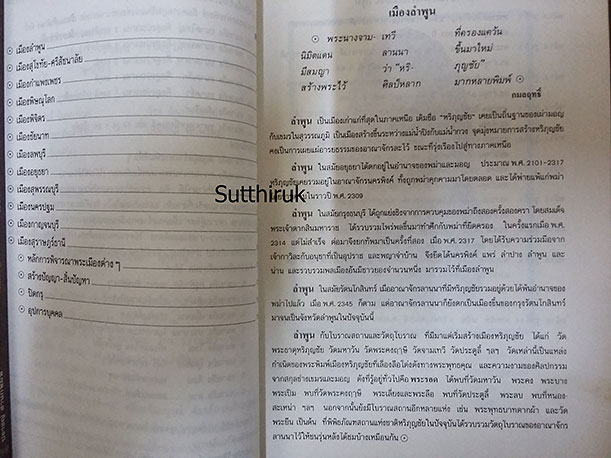 เมืองลำพูน
เมืองสุโขทัย-ศรีสัชนาลัย
เมืองกำแพงเพชร
เมืองพิษณุโลก
เมืองพิจิตร
เมืองชัยนาท
เมืองลพบุรี
เมืองอยุธยา
เมืองสุพรรณบุรี
เมืองนครปฐม
เมืองกาญจนบุรี
เมืองสุราษฎร์ธานี
หลักการพิจารณาพระเมืองต่าง ๆ
สร้างปัญญา-สิ้นปัญหา
ปิดกรุ
อุปการบุคคล
Sutthiruk
เมืองลำพูน
พระนางจาม- เทวี ที่ครองแคว้น
นิมิตแดน ลานนา ขึ้นมาใหม่
มีสมญา ว่า "หริ- ภุญชัย"
สร้างพระไว้ ศิลป์หลาก มากหลายพิมพ์
กมลฤทธิ์
ลำพูน เป็นเมืองเก่าแก่ที่สุดในภาคเหนือ เดิมชื่อ "หริภุญชัย" เคยเป็นถิ่นฐานของเผ่ามอญ
กับเขมรในสุวรรณภูมิ เป็นเมืองสร้างขึ้นระหว่างแม่น้ำปิงกับแม่น้ำกวง จุดมุ่งหมายการสร้างหริภุญชัย
คงเป็นการเผยแผ่อารยธรรมของอาณาจักรละโว้ ขณะที่รุ่งเรืองไปสู่ทางภาคเหนือ
ลำพูน ในสมัยอยุธยาได้ตกอยู่ในอำนาจของพม่าและมอญ ประมาณ พ.ศ. 2101-2317
หริภุญชัยเคยรวมอยู่ในอาณาจักรนครพิงค์ ทั้งถูกพม่าคุกคามมาโดยตลอด และได้พ่ายแพ้แก่พม่า
ในราวปี พ.ศ. 2309
ลำพูน ในสมัยกรุงธนบุรี ได้ถูกแย่งชิงจากการควบคุมของพม่าถึงสองครั้งสองครา โดยสมเด็จ
พระเจ้าตากสินมหาราช ได้รวบรวมไพร่พลขึ้นมาทำศึกกับพม่าที่ยึดครอง ในครั้งแรกเมื่อ พ.ศ.
2314 แต่ไม่สำเร็จ ต่อมาจึงยกทัพมาเป็นครั้งที่สอง เมื่อ พ.ศ. 2317 โดยได้รับความร่วมมือจาก
เจ้ากาวิละกับอนุชาที่เป็นอุปราช และพญาจ่าบ้าน จึงยึดได้นครพิงค์ แพร่ ลำปาง ลำพูน และ
น่าน และรวบรวมพลเมืองอันมีชาวยองจำนวนหนึ่ง มารวมไว้ที่เมืองลำพูน
ลำพูน ในสมัยรัตนโกสินทร์ เมื่ออาณาจักรลานนาที่มีหริภุญชัยรวมอยู่ด้วยได้พ้นอำนาจของ
พม่าไปแล้ว เมื่อ พ.ศ. 2345 ก็ตาม แต่อาณาจักรลานนาก็ยังตกเป็นเมืองขึ้นของกรุงรัตนโกสินทร์
มาจนเป็นจังหวัดลำพูนในปัจจุบันนี้
ลำพูน กับโบราณสถานและวัตถุโบราณ ที่มีมาแต่เริ่มสร้างเมืองหริภุญชัย ได้แก่ วัด
พระธาตุหริภุญชัย วัดมหาวัน วัดพระคงฤาษี วัดจามเทวี วัดประตูลี้ ฯลฯ วัดเหล่านี้เป็นแหล่ง
กำเนิดของพระพิมพ์เมืองหริภุญชัยที่เลื่องลือโด่งดังทางพระพุทธคุณ และความงามของศิลปกรรม
จากสกุลช่างเขมรและมอญ ดังที่รู้อยู่ทั่วไปคือ พระรอด ได้พบที่วัดมหาวัน พระคง พระบาง
พระเปิม พบที่วัดพระคงฤาษี พระเลี่ยงและพระลือ พบที่วัดประตูลี้ พระลบ พบที่หนอง-
สะเหน่า ฯลฯ นอกจากนั้นยังมีโบราณสถานอีกหลายแห่ง เช่น พระพุทธบาทตากผ้า และวัด
พระยืน เป็นต้น ที่พิพิธภัณฑสถานแห่งชาติหริภุญไชยในปัจจุบันได้รวบรวมวัตถุโบราณของอาณาจักร
ลานนาไว้ให้ชนรุ่นหลังได้ชมบ้างเหมือนกัน